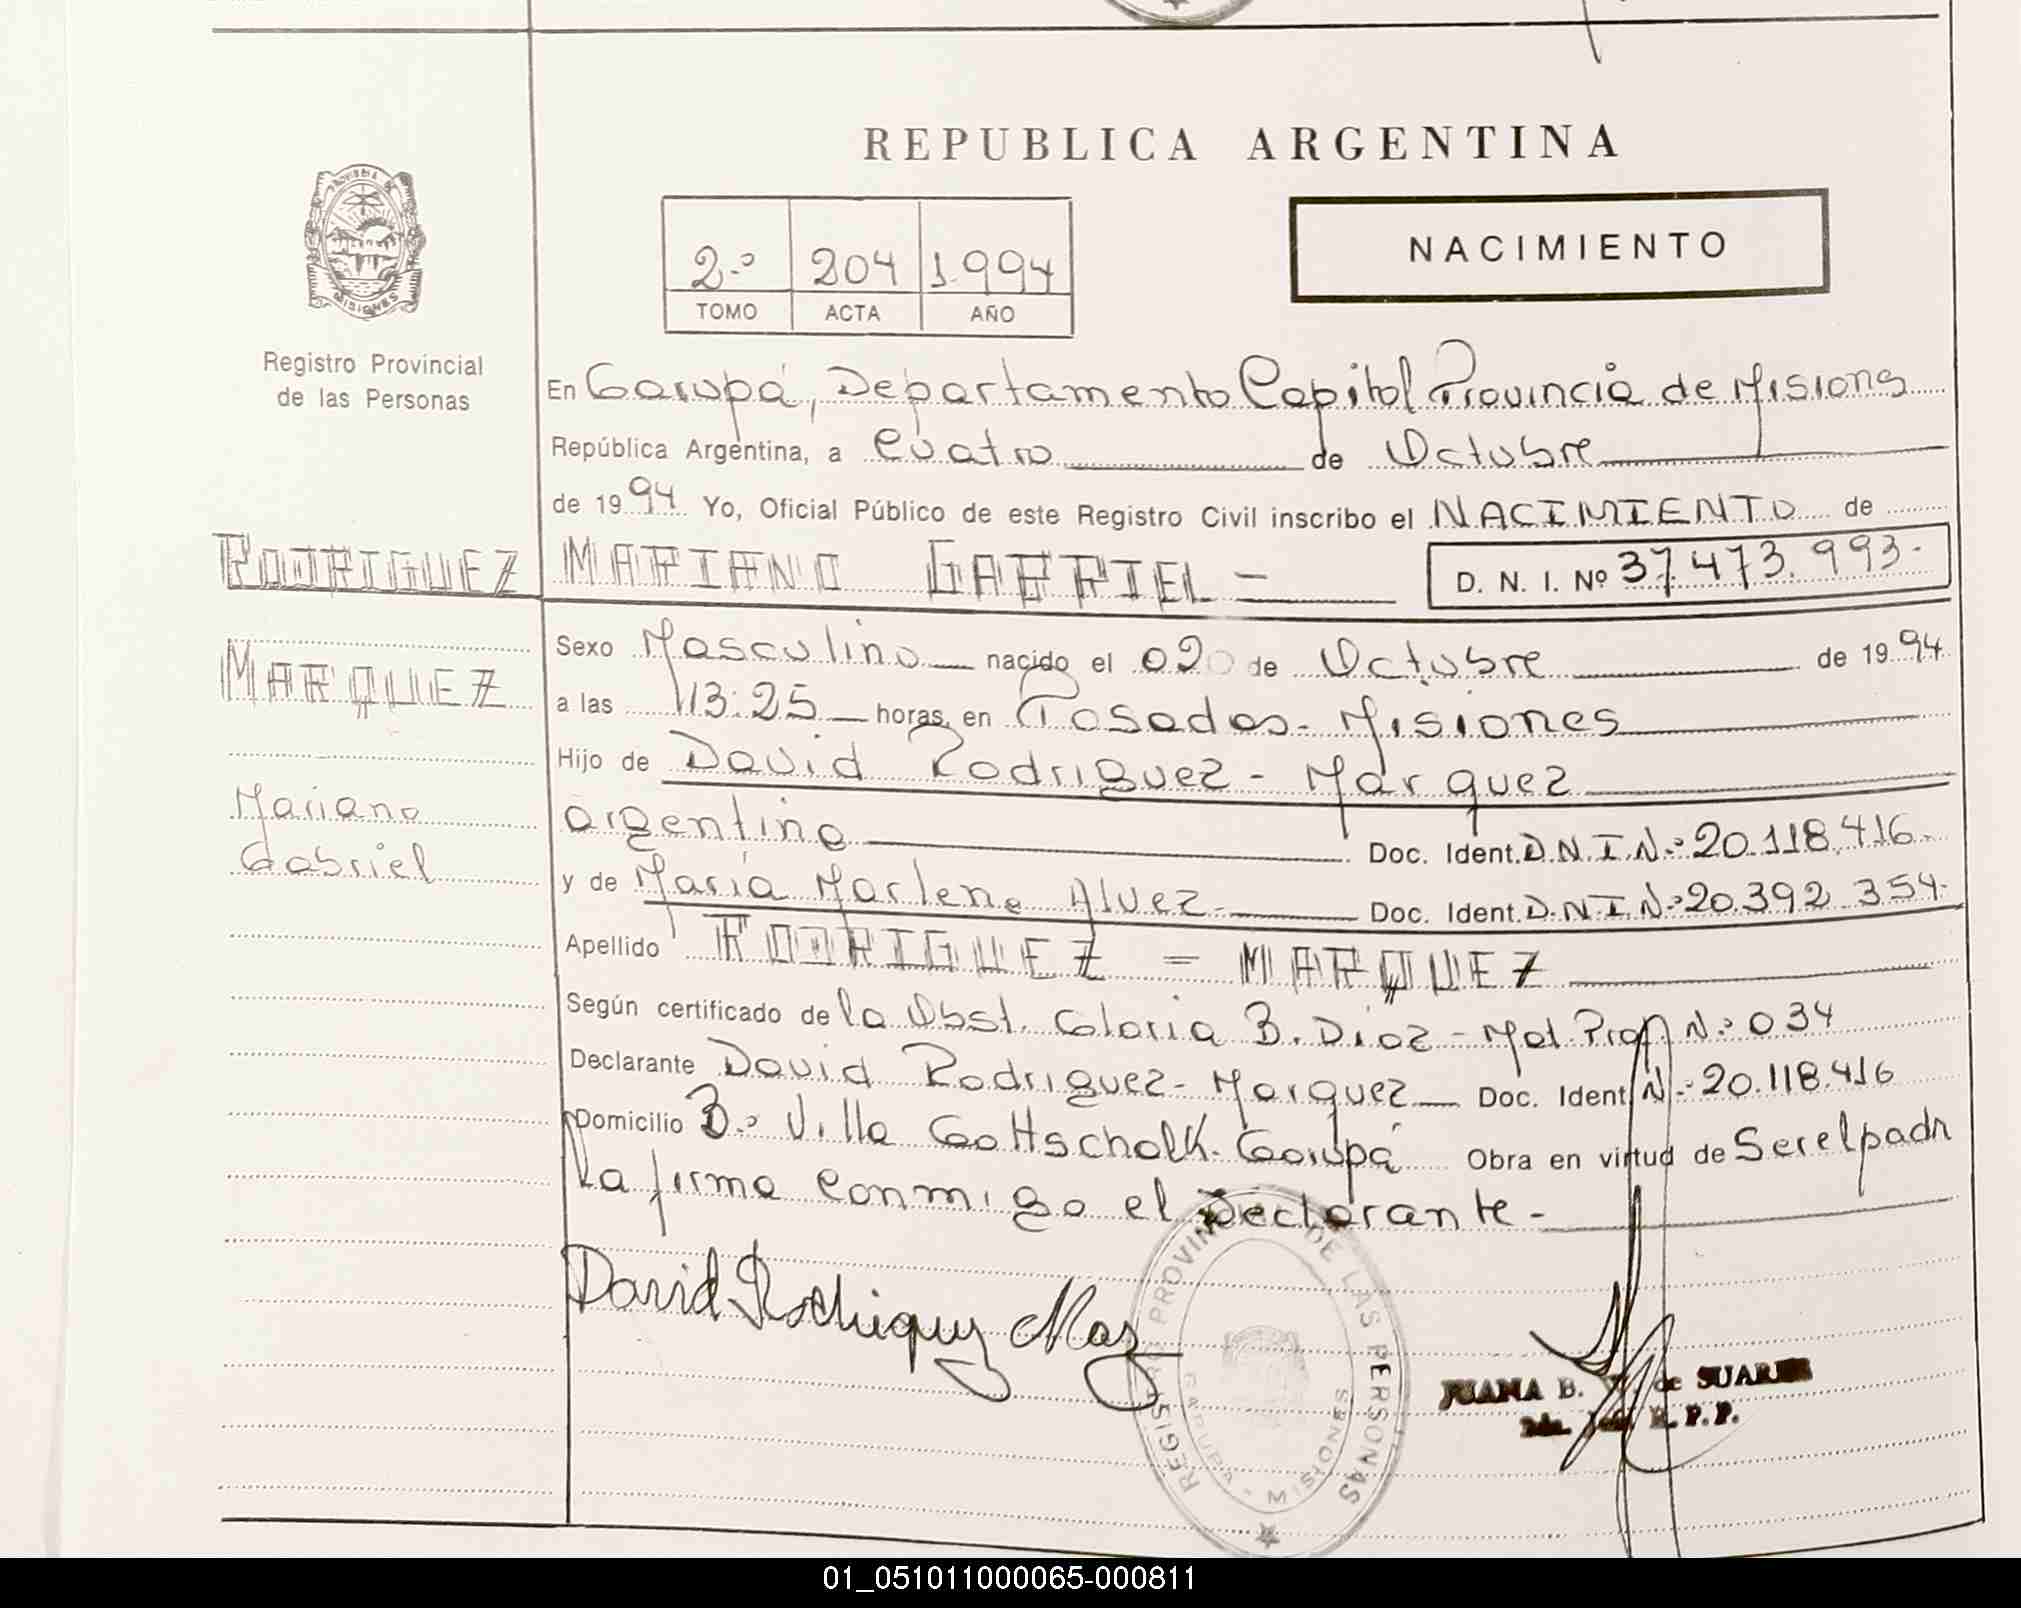 REPUBLICA ARGENTINA
2.º 204 1.994
TOMO ACTA AÑO
NACIMIENTO
MISIONES
Registro Provincial
de las Personas
En Garupá, Departamento Capital Provincia de Misiones
República Argentina, a Cuatro de Octubre
de 1994 Yo, Oficial Público de este Registro Civil inscribo el NACIMIENTO de
RODRIGUEZ MARIANO GABRIEL =
D. N. I. Nº 37.473.993.-
MARQUEZ
Mariano
Gabriel
Sexo Masculino nacido el 02 de Octubre de 1994
a las 13:25 horas en Posadas - Misiones
Hijo de David Rodriguez - Marquez
argentino Doc. Ident. D.N.I.N.º 20.118.416.-
y de María Marlene Alvez Doc. Ident. D.N.I.N.º 20.392.354.-
Apellido RODRIGUEZ = MARQUEZ
Según certificado de la Obst. Gloria B. Diaz - Mat. Prof. N.º 034
Declarante David Rodriguez - Marquez Doc. Ident. N.º 20.118.416
Domicilio B.º Villa Gottschalk. Garupá Obra en virtud de Ser el padr
La firma conmigo el Declarante.-
David Rodriguez
REGISTRO PROVINCIAL DE LAS PERSONAS
GARUPA - MISIONES
JUANA B. de SUAREZ
R. P. P.
01_051011000065-000811